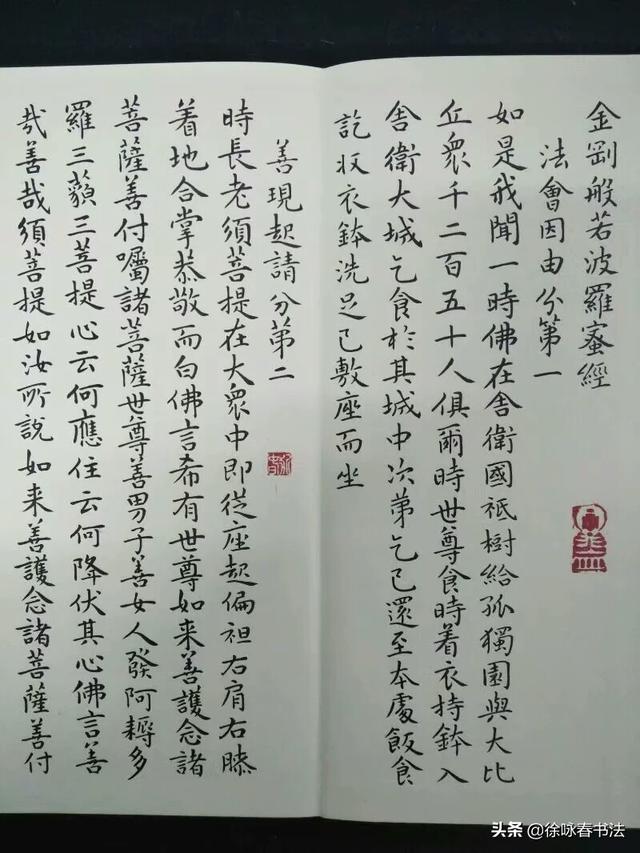 金剛般若波羅蜜經
法會因由分第一
如是我聞一時佛在舍衛國祇樹給孤獨園與大比
丘眾千二百五十人俱爾時世尊食時着衣持鉢入
舍衛大城乞食於其城中次第乞已還至本處飯食
訖收衣鉢洗足已敷座而坐
善現起請分第二
時長老須菩提在大眾中即從座起偏袒右肩右膝
着地合掌恭敬而白佛言希有世尊如来善護念諸
菩薩善付囑諸菩薩世尊善男子善女人發阿耨多
羅三藐三菩提心云何應住云何降伏其心佛言善
哉善哉須菩提如汝所說如来善護念諸菩薩善付
头条 @徐咏春书法